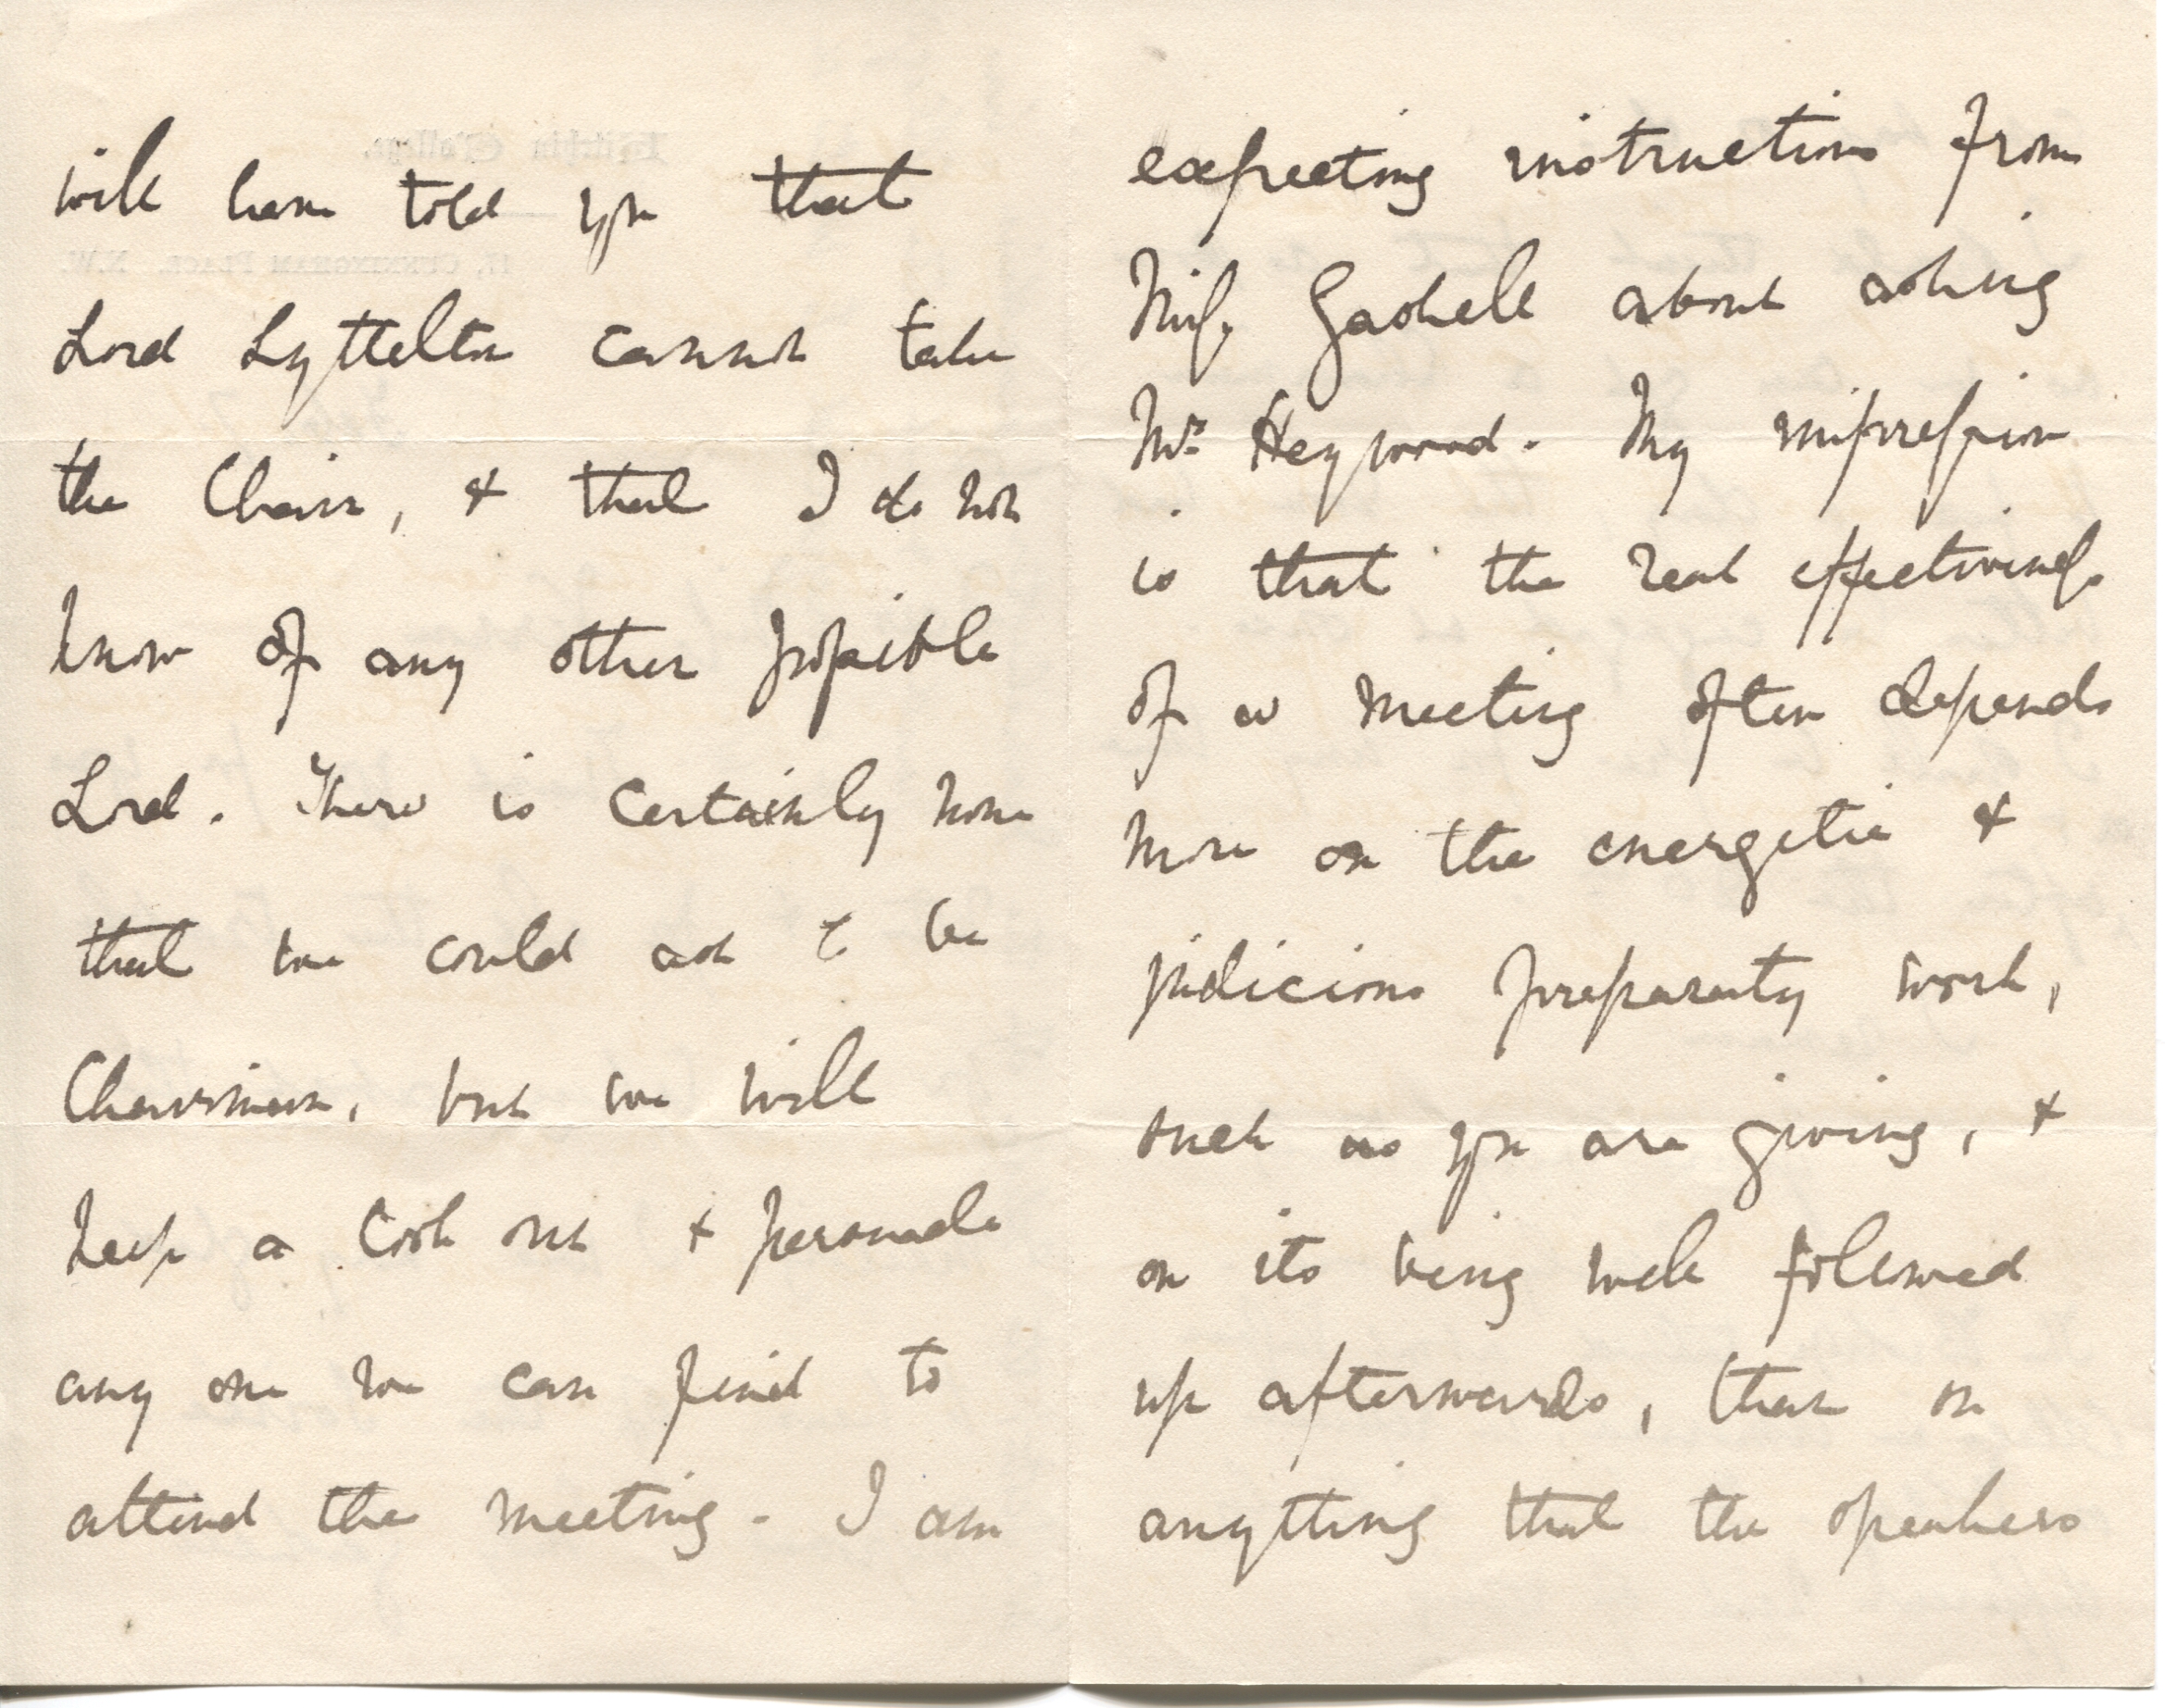 will have told you that
Lord Lyttelton cannot take
the Chair, & that I do not
know of any other possible
Lord. There is certainly none
that we could ask to be
Chairman, but we will
keep a look out & persuade
any one we can find to
attend the meeting. I am
expecting instructions from
Miss Gaskell about asking
Mr. Heywood. My impression
is that the real effectiveness
of a meeting often depends
more on the energetic &
judicious preparatory work,
such as you are giving, &
on its being well followed
up afterwards, than on
anything that the speakers